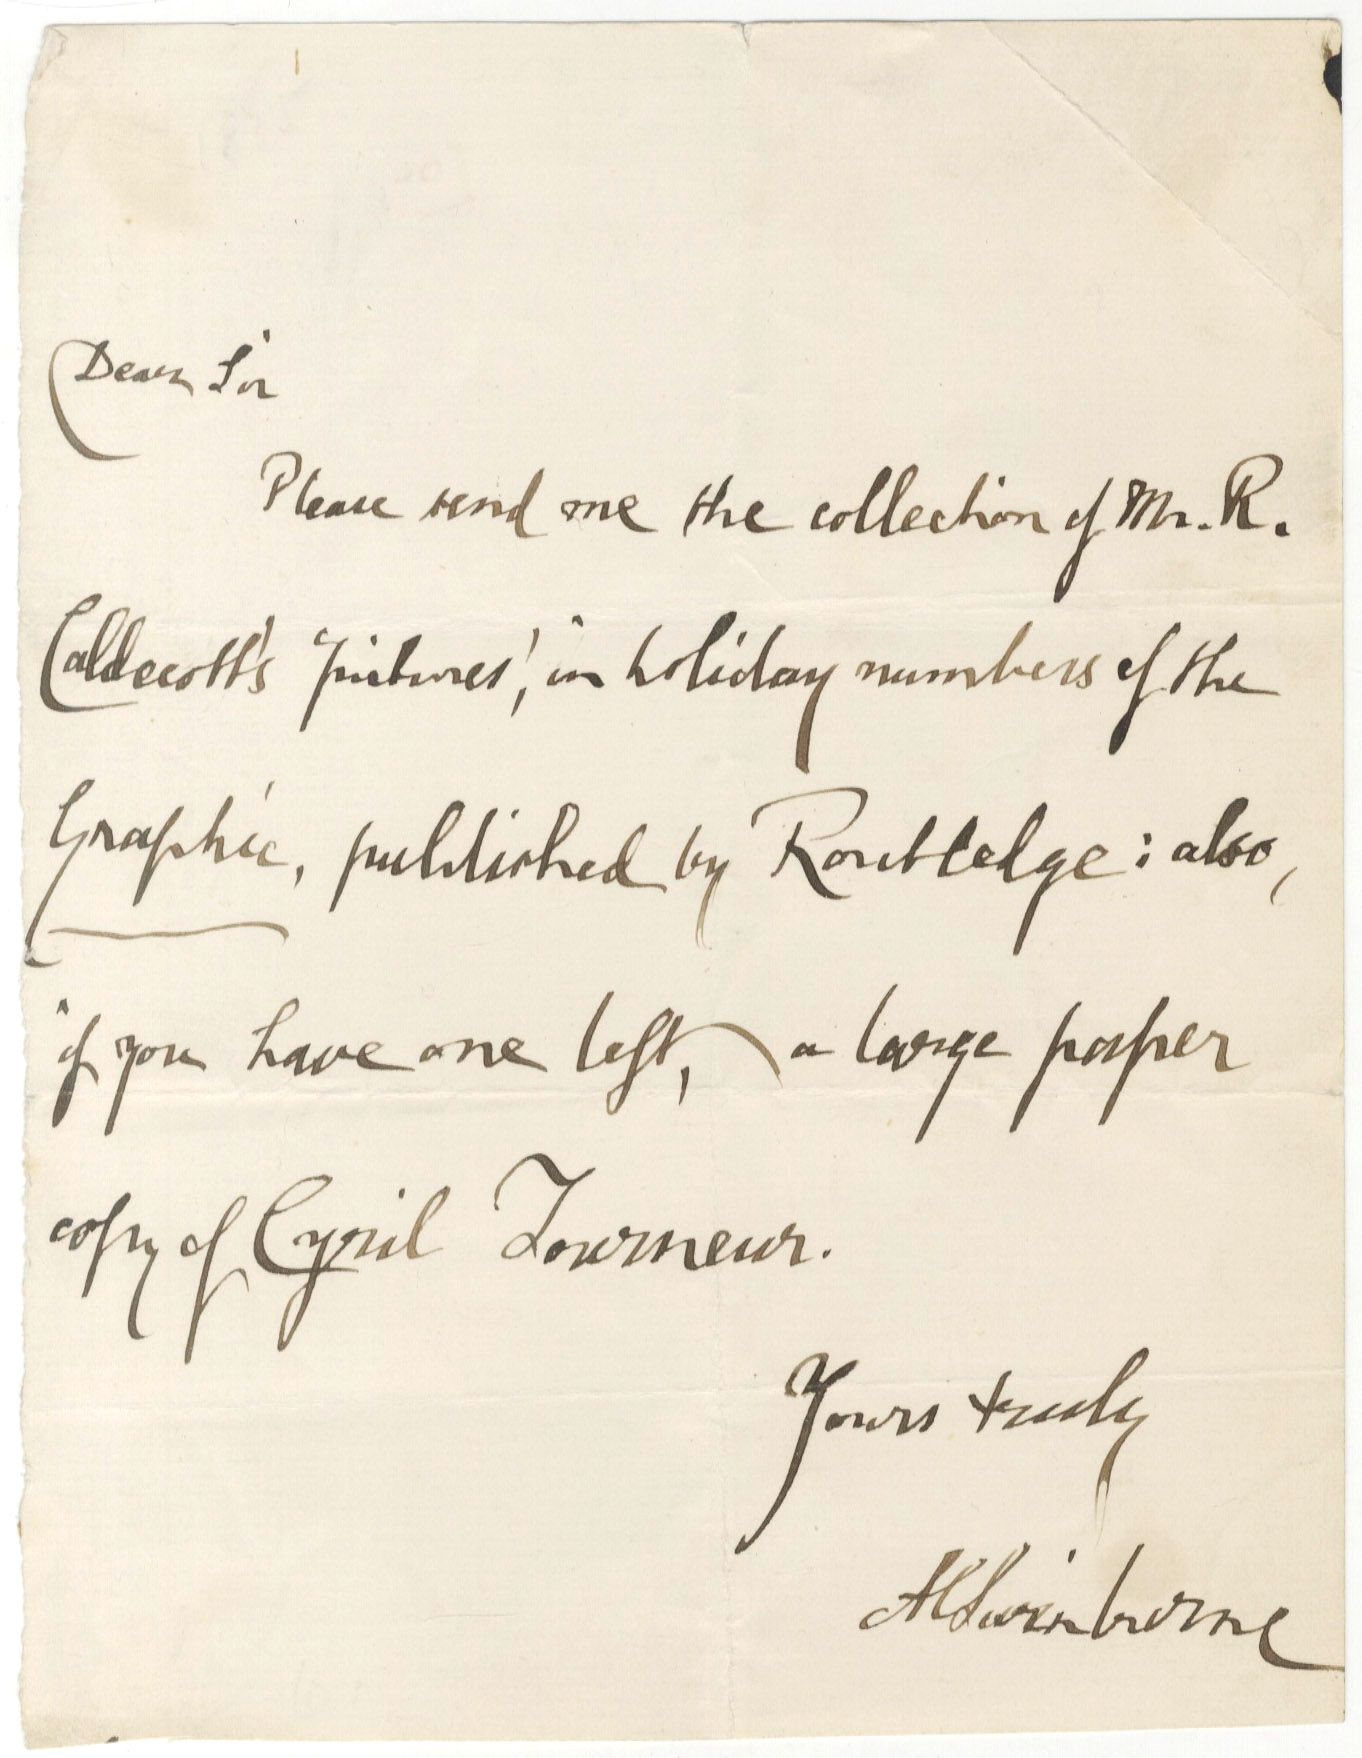 Dear Sir
Please send me the collection of Mr. R.
Caldecott's 'pictures', in holiday numbers of the
Graphic, published by Routledge: also,
if you have one left, a large paper
copy of Cyril Tourneur.
Yours truly
ACSwinburne